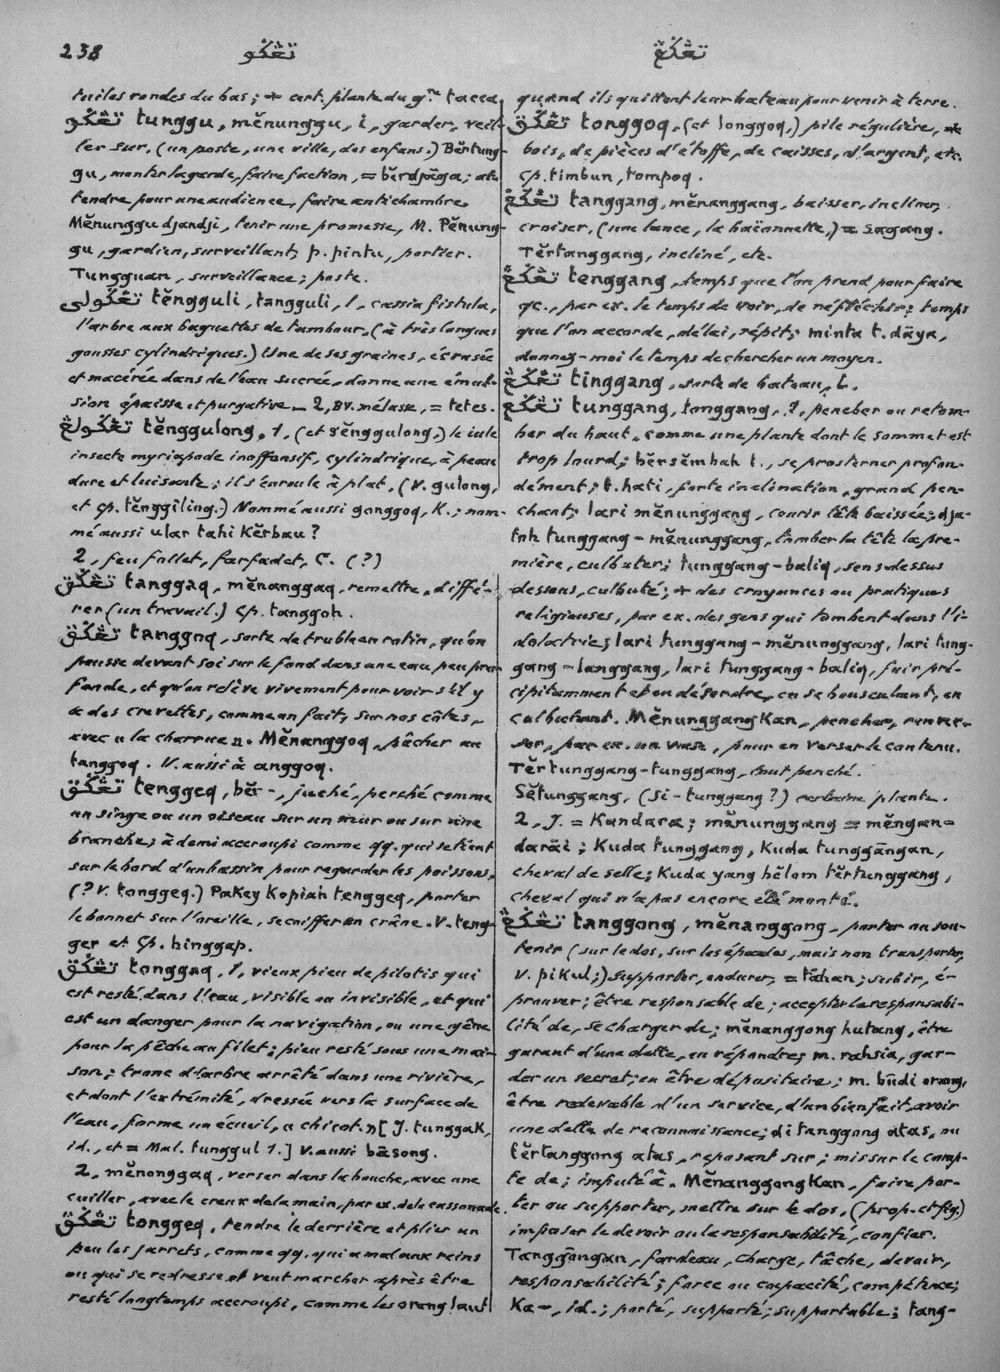 238 تڠݢو تڠݢڠ
tuiles rondes du bas; + cert. plante du gre tacca
تڠݢو tunggu, mĕnunggu, i, garder, veil-
ler sur, (un poste, une ville, des enfans.) Bĕrtung-
gu, monter la garde, faire faction, = bĕrdjāga; at-
tendre pour une audience, faire antichambre.
Mĕnunggu djandji, tenir une promesse, M. Pĕnung-
gu, gardien, surveillant; p. pintu, portier.
Tungguan, surveillance; poste.
تڠݢولي tĕngguli, tangguli, 1, cassia fistula,
l'arbre aux baguettes de tambour, (à très longues
gousses cylindriques.) Une de ses graines, écrasée
et macérée dans de l'eau sucrée, donne une émul-
sion épaisse et purgative _ 2, BV. mélasse, = tetes.
تڠݢولڠ tĕnggulong, 1, (et sĕnggulong,) le iule
insecte myriapode inoffensif, cylindrique, à peau
dure et luisante; il s'enroule à plat, (V. gulong,
et Cp. tĕnggiling.) Nommé aussi gonggoq, K.; nom-
mé aussi ular tahi Kĕrbau?
2, feu follet, farfadet, C. (?)
تڠݢق tanggaq, mĕnanggaq, remettre, diffé-
rer (un travail.) Cp. tanggoh.
تڠݢق tanggoq, sorte de truble en rotin, qu'on
pousse devant soi sur le fond dans une eau peu pro-
fonde, et qu'on relève vivement pour voir s'il y
a des crevettes, comme on fait, sur nos côtes,
avec « la charrue ». Mĕnanggoq, pêcher au
tanggoq. V. aussi à anggoq.
تڠݢق tenggeq, bĕr-, juché, perché comme
un singe ou un oiseau sur un mur ou sur une
branche; à demi accroupi comme qq. qui se tient
sur le bord d'un bassin pour regarder les poissons,
(? V. tonggeq.) Pakey Kopiah tenggeq, porter
le bonnet sur l'oreille, se coiffer en crâne. V. teng-
ger et Cp. hinggap.
تڠݢق tonggaq, 1, vieux pieu de pilotis qui
est resté dans l'eau, visible ou invisible, et qui
est un danger pour la navigation, ou une gêne
pour la pêche au filet; pieu resté sous une mai-
son; tronc d'arbre arrêté dans une rivière,
et dont l'extrémité, dressée vers la surface de
l'eau, forme un écueil, « chicot. » [J. tunggak,
id., et = Mal. tunggul 1.] V. aussi bāsong.
2, mĕnonggaq, verser dans la bouche, avec une
cuiller, avec le creux de la main, par ex. de la cassonade.
تڠݢق tonggeq, tendre le derrière et plier un
peu les jarrets, comme qq. qui a mal aux reins
ou qui se redresse et veut marcher après être
resté longtemps accroupi, comme les orang laut
quand ils quittent leur bateau pour venir à terre.
تڠݢق tonggoq, (et longgoq,) pile régulière, de
bois, de pièces d'étoffe, de caisses, d'argent, etc.
Cp. timbun, tompoq.
تڠݢڠ tanggang, mĕnanggang, baisser, incliner,
croiser, (une lance, la baïonnette,) = sagang.
Tĕrtanggang, incliné, etc.
تڠݢڠ tenggang, temps que l'on prend pour faire
qc., par ex. le temps de voir, de réfléchir; temps
que l'on accorde, délai, répit; minta t. dāya,
donnez-moi le temps de chercher un moyen.
تڠݢڠ tinggang, sorte de bateau, L.
تڠݢڠ tunggang, tonggang, 1, pencher ou retom-
ber du haut, comme une plante dont le sommet est
trop lourd; bĕrsĕmbah t., se prosterner profon-
dément; t. hati, forte inclination, grand pen-
chant; lari mĕnunggang, courir tête baissée; dja-
toh tunggang-mĕnunggang, tomber la tête la pre-
mière, culbuter; tunggang-baliq, sens dessus
dessous, culbuté; + des croyances ou pratiques
religieuses, par ex. des gens qui tombent dans l'i-
dolâtrie; lari tunggang-mĕnunggang, lari tung-
gang-langgang, lari tunggang-baliq, fuir pré-
cipitamment et en désordre, en se bousculant, en
culbutant. Mĕnunggangkan, pencher, renver-
ser, par ex. un vase, pour en verser le contenu.
Tĕrtunggang-tunggang, tout penché.
Sĕtunggang, (Si-tunggang?) certaine plante.
2, J. = Kandara; mĕnunggang = mĕngan-
darāi; Kuda tunggang, Kuda tunggāngan,
cheval de selle; Kuda yang bĕlom tĕrtunggang,
cheval qui n'a pas encore été monté.
تڠݢڠ tanggong, mĕnanggong, porter ou sou-
tenir (sur le dos, sur les épaules, mais non transporter,
V. pikul;) supporter, endurer, = tāhan; subir, é-
prouver; être responsable de; accepter la responsabi-
lité de, se charger de; mĕnanggong hutang, être
garant d'une dette, en répondre; m. rahsia, gar-
der un secret, en être dépositaire; m. būdi orang,
être redevable d'un service, d'un bienfait, avoir
une dette de reconnaissance; di tanggong atas, ou
tĕrtanggong atas, reposant sur; mis sur le comp-
te de; imputé à. Mĕnanggongkan, faire por-
ter ou supporter, mettre sur le dos, (prop. et fig.)
imposer le devoir ou la responsabilité, confier.
Tanggōngan, fardeau, charge, tâche, devoir,
responsabilité; force ou capacité, compétence;
Ka-, id.; porté, supporté; supportable; tang-